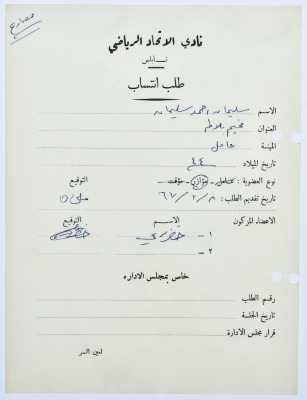 مصارع
نادي الاتحاد الرياضي
نابلس
طلب انتساب
الاسم سليمان احمد سليمان
العنوان مخيم بلاطه
المهنة عامل
تاريخ الميلاد ٤٤
نوع العضوية : عامل - مؤازر - مؤقت - التوقيع
تاريخ تقديم الطلب : ٦٧/٢/٨
الاعضاء المزكون الاسم التوقيع
١ - خضر
٢ -
خاص بمجلس الاداره
رقم الطلب
تاريخ الجلسة
قرار مجلس الادارة
امين السر